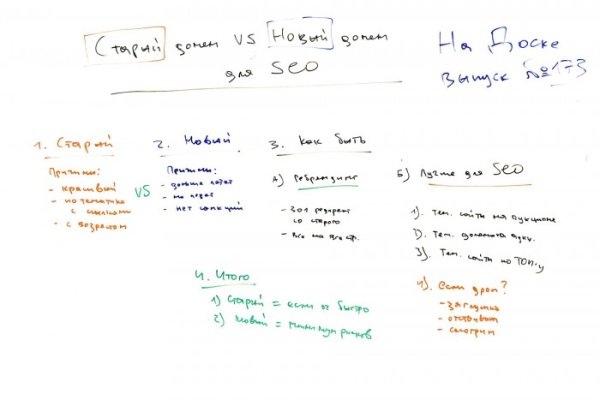 Старый домен VS Новый домен
для SEO
На Доске
выпуск №173
1. Старый
Причины:
- красивый
- по тематике
с ссылками
- с возрастом
VS
2. Новый
Причины:
- дольше
- не
- нет санкций
3. Как быть
А) Ребрендинг
- 301 редирект
со старого
- Все на все стр.
Б) Лучше для SEO
1). Тем. сайты на аукционе
2). Тем. домены аукц.
3). Тем. сайты по ТОП-у
4). Если дроп?
- загрузить
- отстоять
- смотрим
4. Итого
1) Старый = если оч быстро
2) Новый = минимум рисков